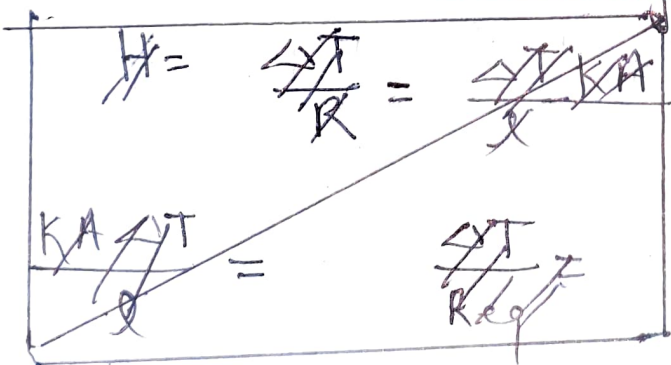 H = ΔT/R = ΔT KA/l
KA ΔT/l = ΔT/Req